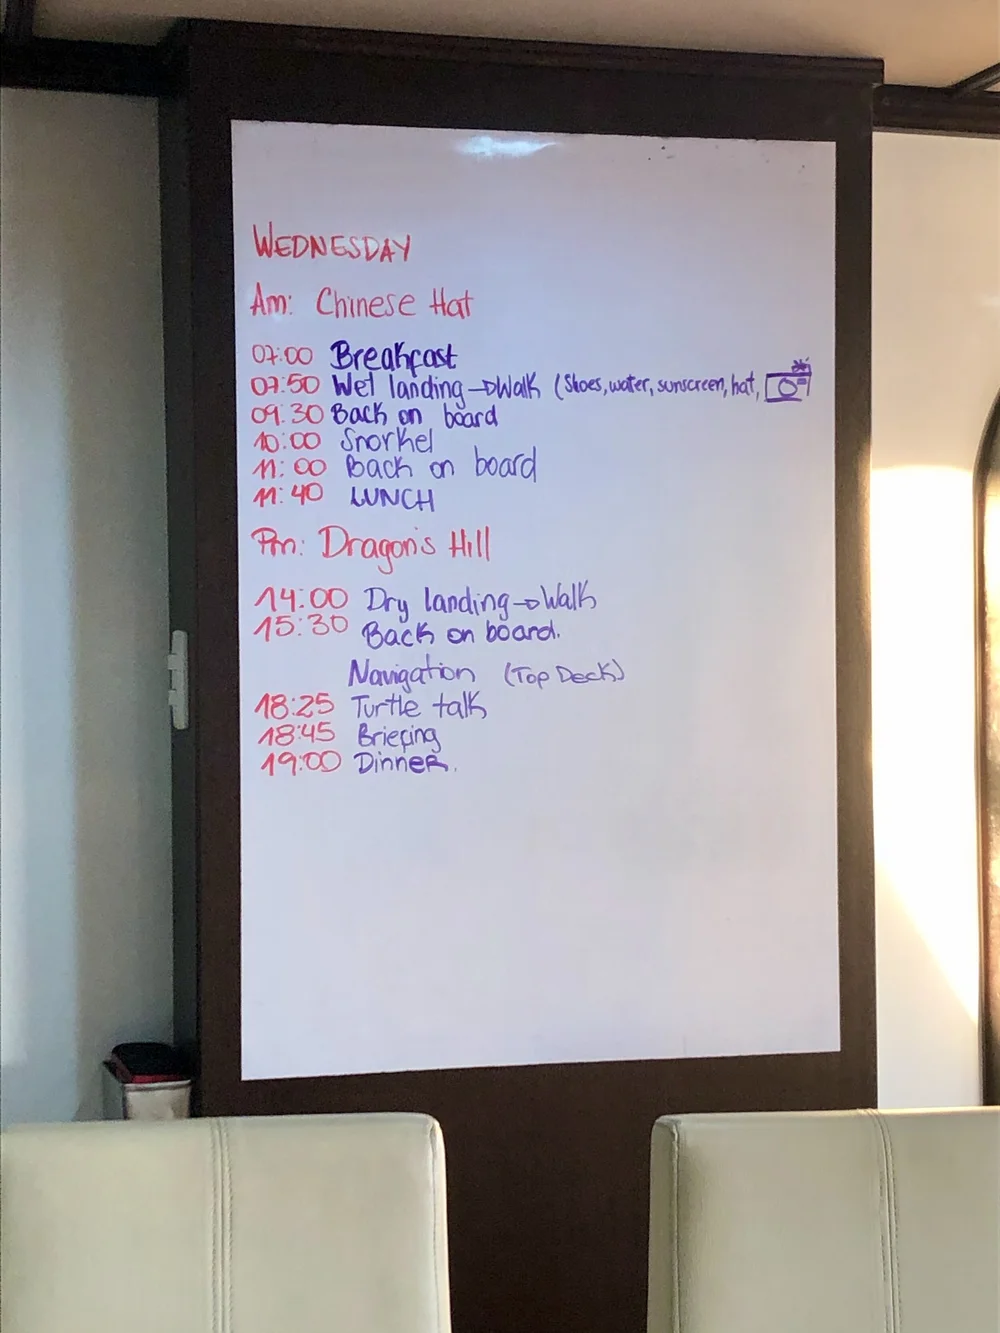 WEDNESDAY
Am: Chinese Hat
07:00 Breakfast
07:50 Wet landing→Walk (Shoes, water, sunscreen, hat,
09.30 Back on board
10:00 Snorkel
11:00 Back on board
11:40 LUNCH
Pm: Dragon's Hill
14:00 Dry landing→Walk
15:30 Back on board.
Navigation (Top Deck)
18:25 Turtle talk
18:45 Briefing
19:00 Dinner.